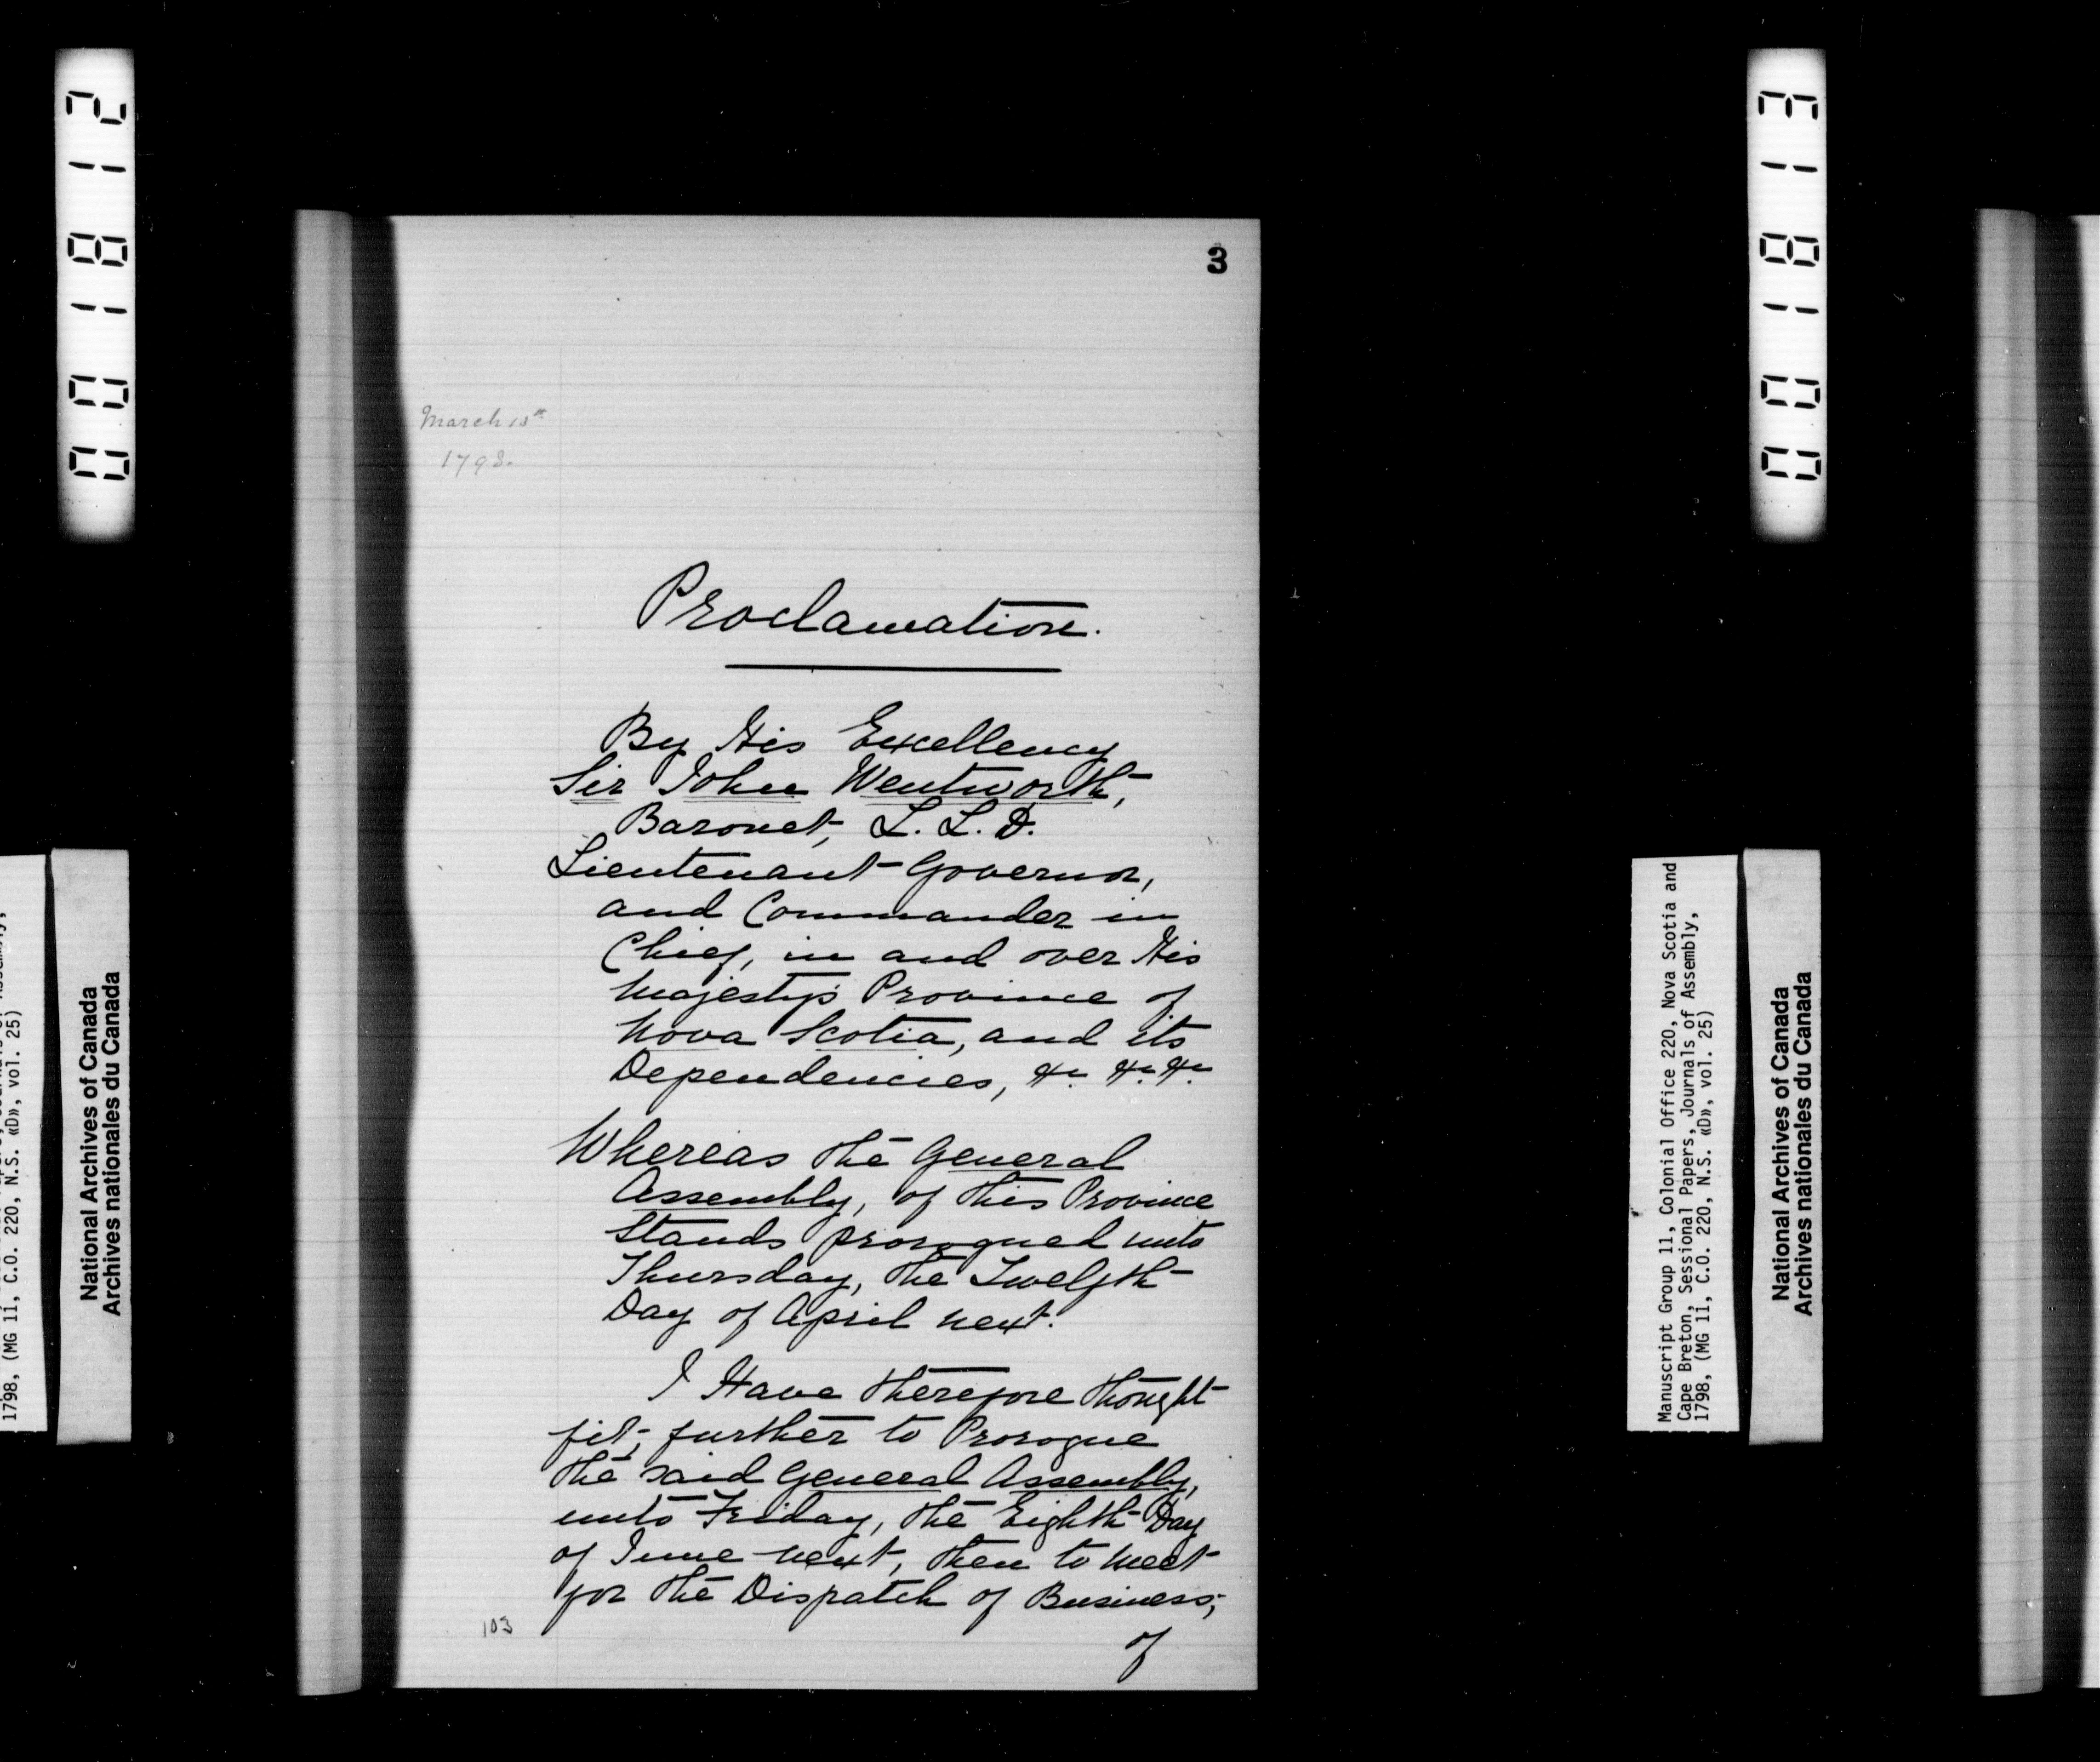 000812
000813
3
March 13th
1798.
Proclamation.
By His Excellency
Sir John Wentworth,
Baronet, L. L. D.
Lieutenant-Governor,
and Commander in
Chief, in and over His
Majesty's Province of
Nova Scotia, and its
Dependencies, &c. &c. &c.
Whereas the General
Assembly, of this Province
Stands prorogued unto
Thursday, the Twelfth
Day of April next.
I Have therefore thought
fit, further to Prorogue
the said General Assembly,
unto Friday, the Eighth Day
of June next, then to meet
for the Dispatch of Business;
of
103
1798, (MG 11, C.O. 220, N.S. «D», vol. 25)
National Archives of Canada
Archives nationales du Canada
Manuscript Group 11, Colonial Office 220, Nova Scotia and
Cape Breton, Sessional Papers, Journals of Assembly,
1798, (MG 11, C.O. 220, N.S. «D», vol. 25)
National Archives of Canada
Archives nationales du Canada